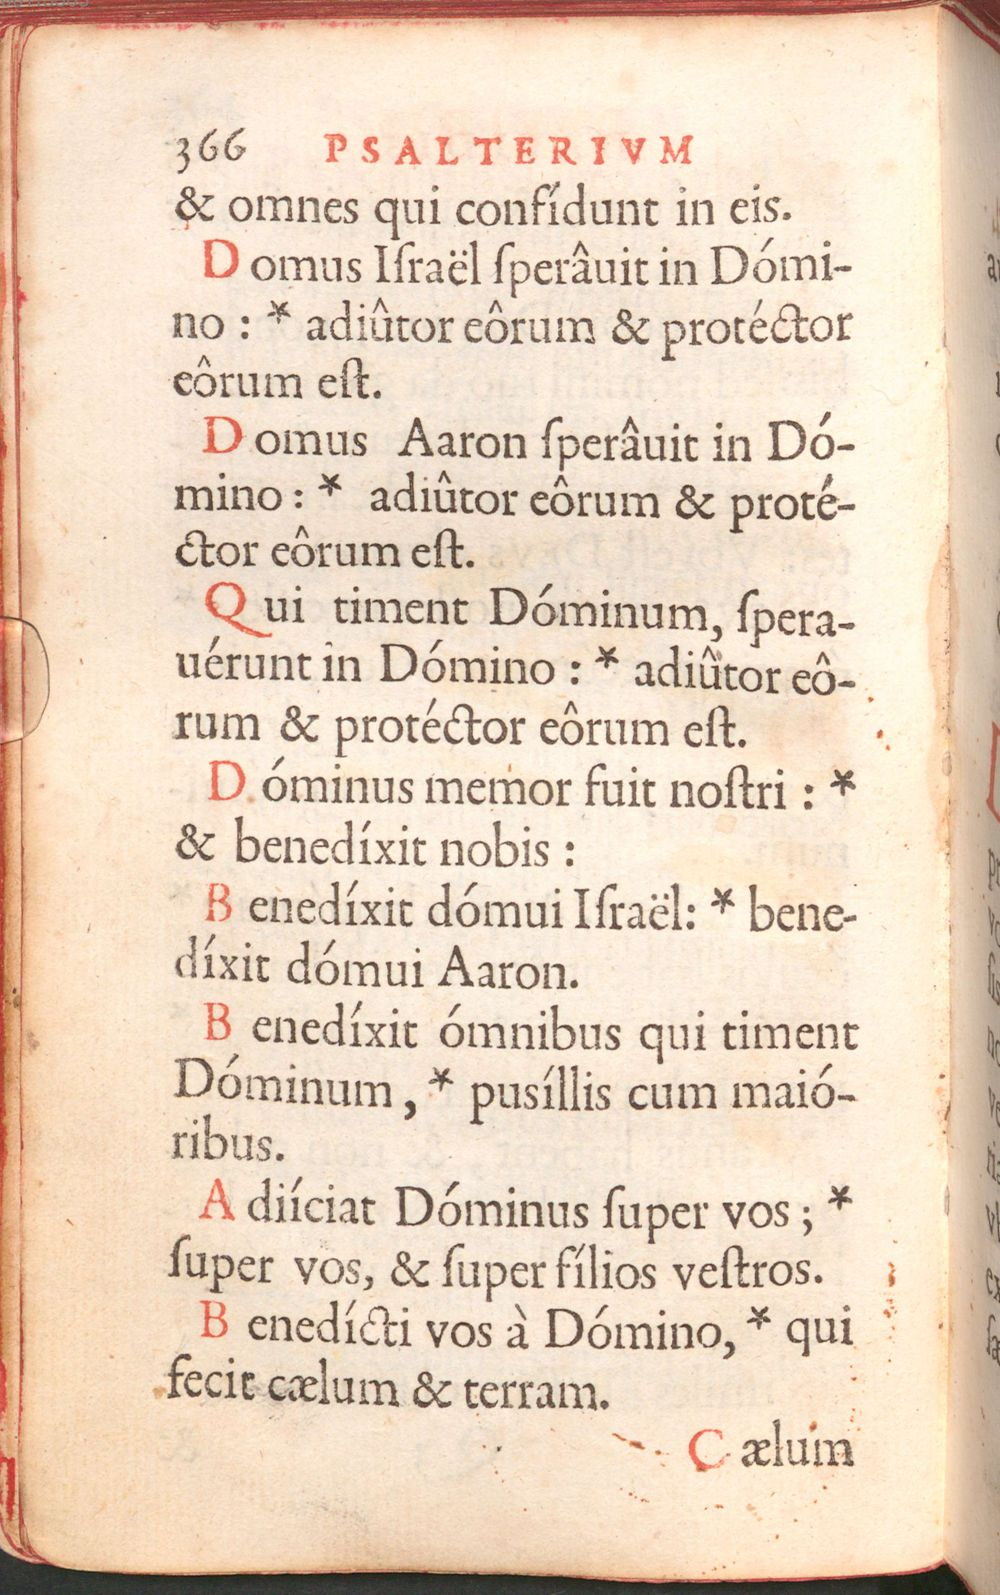 366 PSALTERIVM
& omnes qui confídunt in eis.
Domus Iſraël ſperâuit in Dómi-
no : * adiûtor eôrum & protéctor
eôrum eſt.
Domus Aaron ſperâuit in Dó-
mino : * adiûtor eôrum & proté-
ctor eôrum eſt.
Qui timent Dóminum, ſpera-
uérunt in Dómino : * adiûtor eô-
rum & protéctor eôrum eſt.
Dóminus memor fuit noſtri : *
& benedíxit nobis :
Benedíxit dómui Iſraël: * bene-
díxit dómui Aaron.
Benedíxit ómnibus qui timent
Dóminum, * pusíllis cum maió-
ribus.
Adiíciat Dóminus ſuper vos ; *
ſuper vos, & ſuper fílios veſtros.
Benedícti vos à Dómino, * qui
fecit cælum & terram.
Cælum